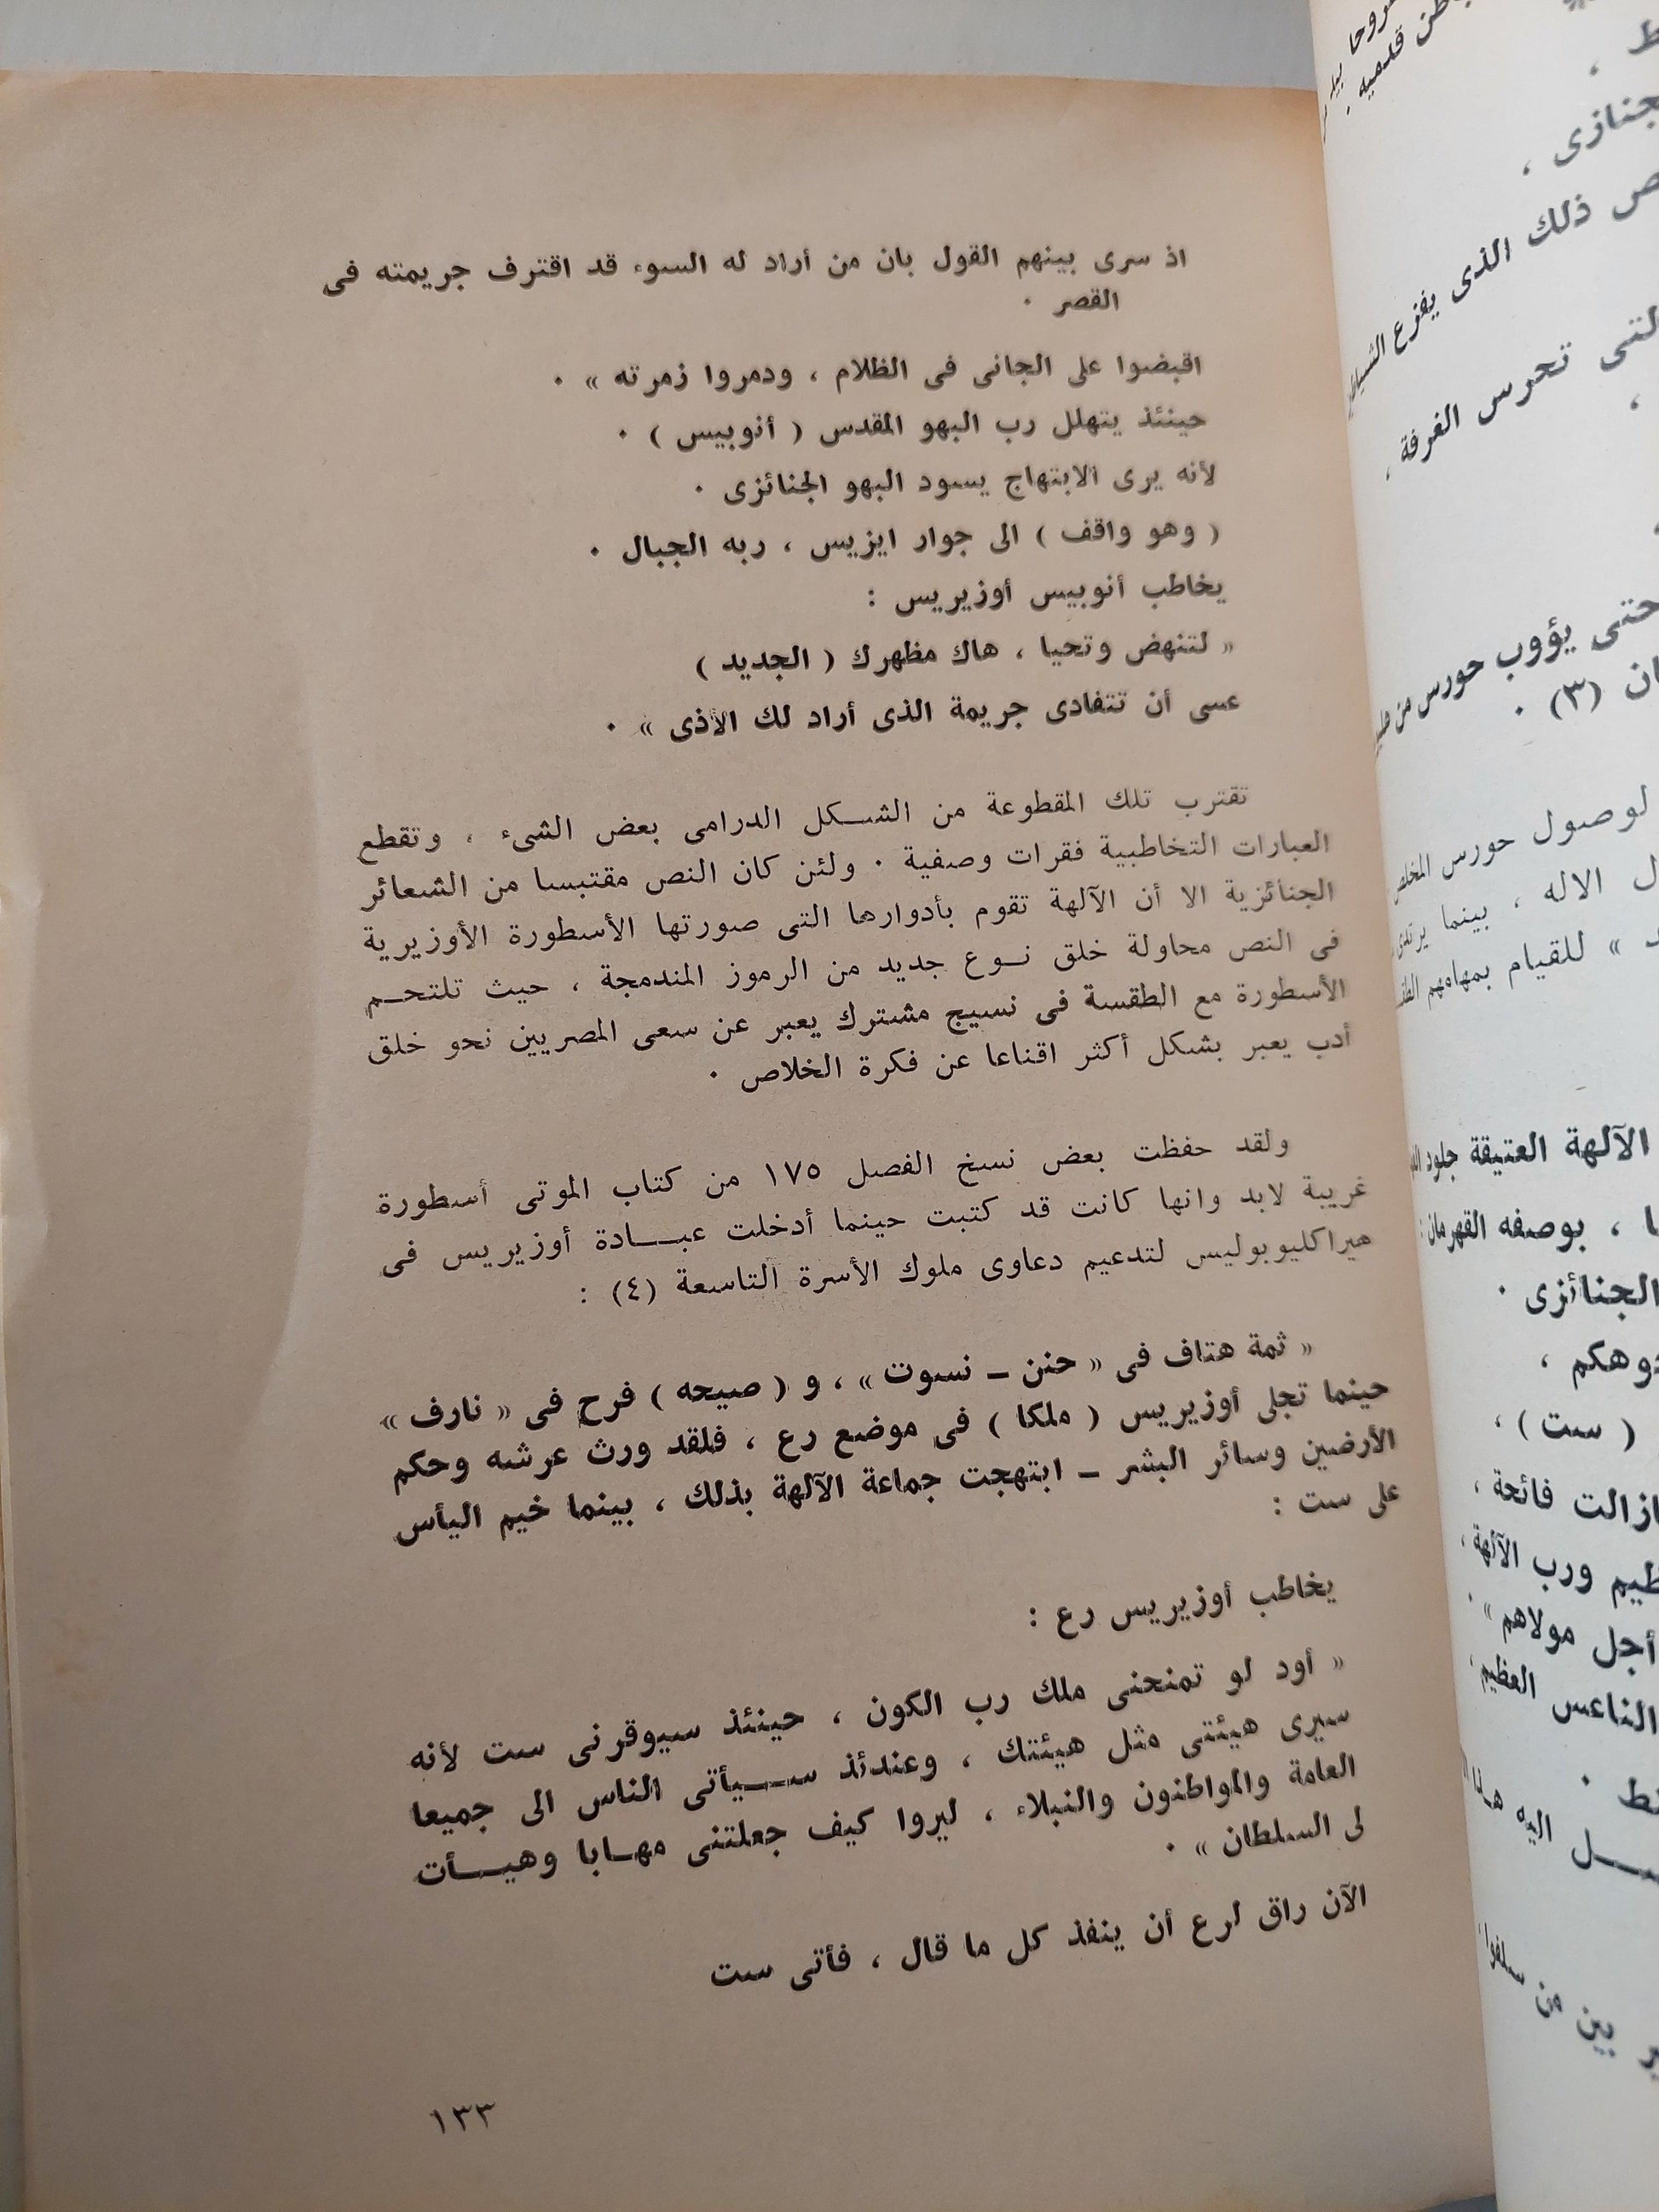 اذ سرى بينهم القول بان من أراد له السوء قد اقترف جريمته فى
القصر ٠
اقبضوا على الجانى فى الظلام ، ودمروا زمرته » ٠
حينئذ يتهلل رب البهو المقدس ( أنوبيس ) ٠
لأنه يرى الابتهاج يسود البهو الجنائزى ٠
( وهو واقف ) الى جوار ايزيس ، ربه الجبال ٠
يخاطب أنوبيس أوزيريس :
« لتنهض وتحيا ، هاك مظهرك ( الجديد )
عسى أن تتفادى جريمة الذى أراد لك الأذى » ٠
تقترب تلك المقطوعة من الشكل الدرامى بعض الشىء ، وتقطع
العبارات التخاطبية فقرات وصفية ٠ ولئن كان النص مقتبسا من الشعائر
الجنائزية الا أن الآلهة تقوم بأدوارها التى صورتها الأسطورة الأوزيرية
فى النص محاولة خلق نوع جديد من الرموز المندمجة ، حيث تلتحم
الأسطورة مع الطقسة فى نسيج مشترك يعبر عن سعى المصريين نحو خلق
أدب يعبر بشكل أكثر اقناعا عن فكرة الخلاص ٠
ولقد حفظت بعض نسخ الفصل ١٧٥ من كتاب الموتى أسطورة
غريبة لابد وانها كانت قد كتبت حينما أدخلت عبادة أوزيريس فى
هيراكليوبوليس لتدعيم دعاوى ملوك الأسرة التاسعة (٤) :
« ثمة هتاف فى « حنن ـ نسوت » ، و ( صيحه ) فرح فى « نارف »
حينما تجلى أوزيريس ( ملكا ) فى موضع رع ، فلقد ورث عرشه وحكم
الأرضين وسائر البشر ـ ابتهجت جماعة الآلهة بذلك ، بينما خيم اليأس
على ست :
يخاطب أوزيريس رع :
« أود لو تمنحنى ملك رب الكون ، حينئذ سيوقرنى ست لأنه
سيرى هيئتى مثل هيئتك ، وعندئذ سيأتى الناس الى جميعا
العامة والمواطنون والنبلاء ، ليروا كيف جعلتنى مهابا وهيأت
لى السلطان » ٠
الآن راق لرع أن ينفذ كل ما قال ، فأتى ست
١٣٣
قدميه ٠
ذلك الذى يفزع
تحرس الغرفة ،
حتى يؤوب حورس من
(٣) ٠
لوصول حورس
الاله ، بينما يرتدى
» للقيام بمهامهم
الآلهة العتيقة جلود
، بوصفه القهرمان
الجنائزى ٠
( ست ) ،
فائحة ،
ورب الآلهة ،
أجل مولاهم » ٠
الناعس العظيم ،
اليه
بين من